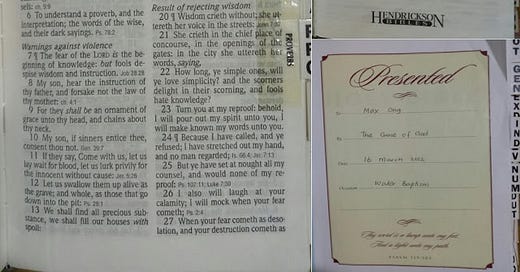 self: ch. 5:9
6 To understand a proverb, and the
interpretation; the words of the wise,
and their dark sayings. Ps. 78:2
Warnings against violence
7 ¶ The fear of the LORD is the be-
ginning of knowledge: but fools de-
spise wisdom and instruction. Job 28:28
8 My son, hear the instruction of
thy father, and forsake not the law
of thy mother: ch. 4:1
9 For they shall be an ornament of
grace unto thy head, and chains about
thy neck.
10 My son, if sinners entice thee,
consent thou not. Gen. 39:7
11 If they say, Come with us, let us
lay wait for blood, let us lurk privily for
the innocent without cause: Jer. 5:26
12 Let us swallow them up alive as
the grave; and whole, as those that go
down into the pit: Ps. 28:1
13 We shall find all precious sub-
stance, we shall fill our houses with
spoil:
Result of rejecting wisdom
20 ¶ Wisdom crieth without; she ut-
tereth her voice in the streets:
21 She crieth in the chief place of
concourse, in the openings of the
gates: in the city she uttereth her
words, saying,
22 How long, ye simple ones, will
ye love simplicity? and the scorners
delight in their scorning, and fools
hate knowledge?
23 Turn you at my reproof: behold,
I will pour out my spirit unto you, I
will make known my words unto you.
24 ¶ Because I have called, and ye
refused; I have stretched out my hand,
and no man regarded; Is. 66:4; Jer. 7:13
25 But ye have set at nought all my
counsel, and would none of my re-
proof: Ps. 107:11; Luke 7:30
26 I also will laugh at your
calamity; I will mock when your fear
cometh; Ps. 2:4
27 When your fear cometh as deso-
lation, and your destruction cometh as
PROVERBS
HENDRICKSON
BIBLES
Presented
To Max Ong
By The Grace of God
Date 16 March 2002
Occasion Water Baptism
Thy word is a lamp unto my feet,
And a light unto my path.
PSALM 119:105
GEN
EX
NUM